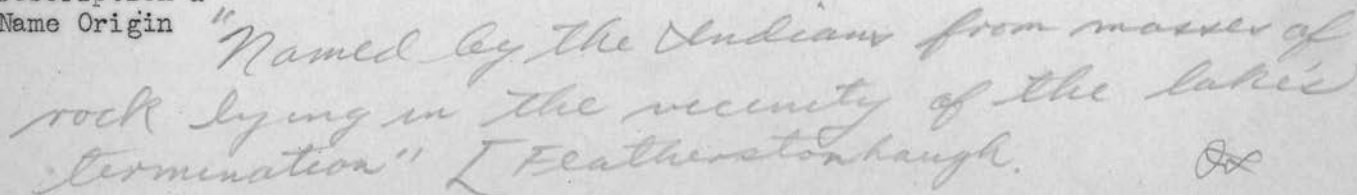 Name Origin "Named by the Indians from masses of
rock lying in the vicinity of the lake's
termination" [Featherstonhaugh.